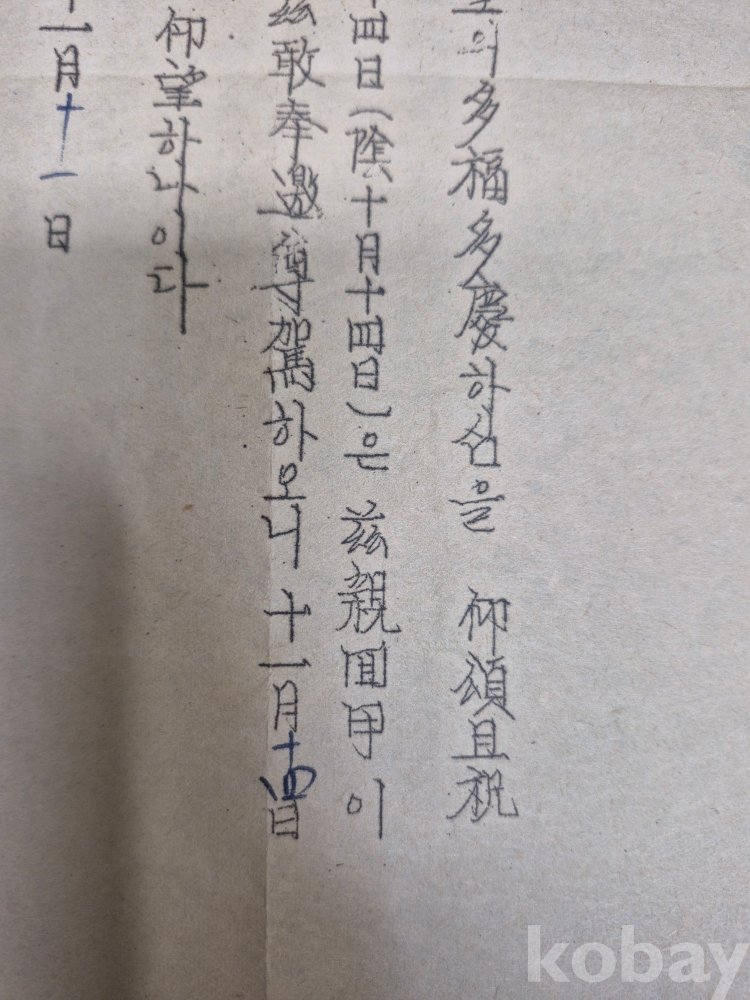 의 多福多慶하심을 仰頌且祝
十四日(陰十月十四日)은 茲親回甲이
茲敢奉邀尊駕하오니 十一月十四日
仰望하나이다
十一月十一日
kobay